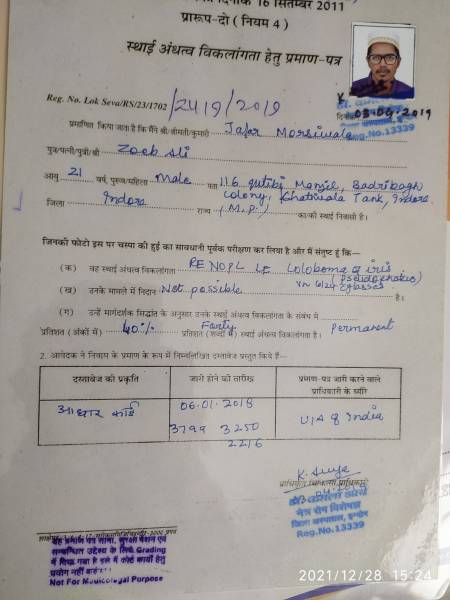 दिनांक 16 सितम्बर 2011
प्रारूप-दो ( नियम 4 )
स्थाई अंधत्व विकलांगता हेतु प्रमाण-पत्र
Reg. No. Lok Seva/RS/23/1702 /2419/2019
दिनांक 03-04-2019
Reg.No.13339
प्रमाणित किया जाता है कि मैंने श्री/श्रीमती/कुमारी Jafar Morsiwala
पुत्र/पत्नी/पुत्री/श्री Zoeb Ali
आयु 21 वर्ष, पुरूष/महिला Male पता 116 qutibi Manzil, Badribagh
colony, Khatiwala Tank, Indore
जिला Indore राज्य (M.P.) का/की स्थाई निवासी है।
जिनकी फोटो इस पर चस्पा की हुई का सावधानी पूर्वक परीक्षण कर लिया है और मैं संतुष्ट हूं कि—
(क) वह स्थाई अंधत्व विकलांगता RE NOPL LE Coloboma of iris
(pseudophakic)
(ख) उनके मामले में निदान Not possible Vn 6/24 c glasses है।
(ग) उन्हें मार्गदर्शक सिद्धांत के अनुसार उनके स्थाई अंधत्व विकलांगता के संबंध में
प्रतिशत (अंकों में) 40% प्रतिशत (शब्दों में) Forty स्थाई अंधत्व विकलांगता है। Permanent
2. आवेदक ने निवास के प्रमाण के रूप में निम्नलिखित दस्तावेज प्रस्तुत किये हैं—
दस्तावेज की प्रकृति जारी होने की तारीख प्रमाण-पत्र जारी करने वाले
प्राधिकारी के ब्यौरे
आधार कार्ड 06.01.2018 UIA of India
3799 3250
2216
प्राधिकृत चिकित्सा प्राधिकारी
नेत्र रोग विशेषज्ञ
जिला चिकित्सालय, इन्दौर
Reg.No.13339
यह प्रमाण पत्र मात्र, सुरक्षा पेंशन एवं
सम्बन्धित उद्देश्य के लिये Grading
Not For Medicolegal Purpose
2021/12/28 15:24